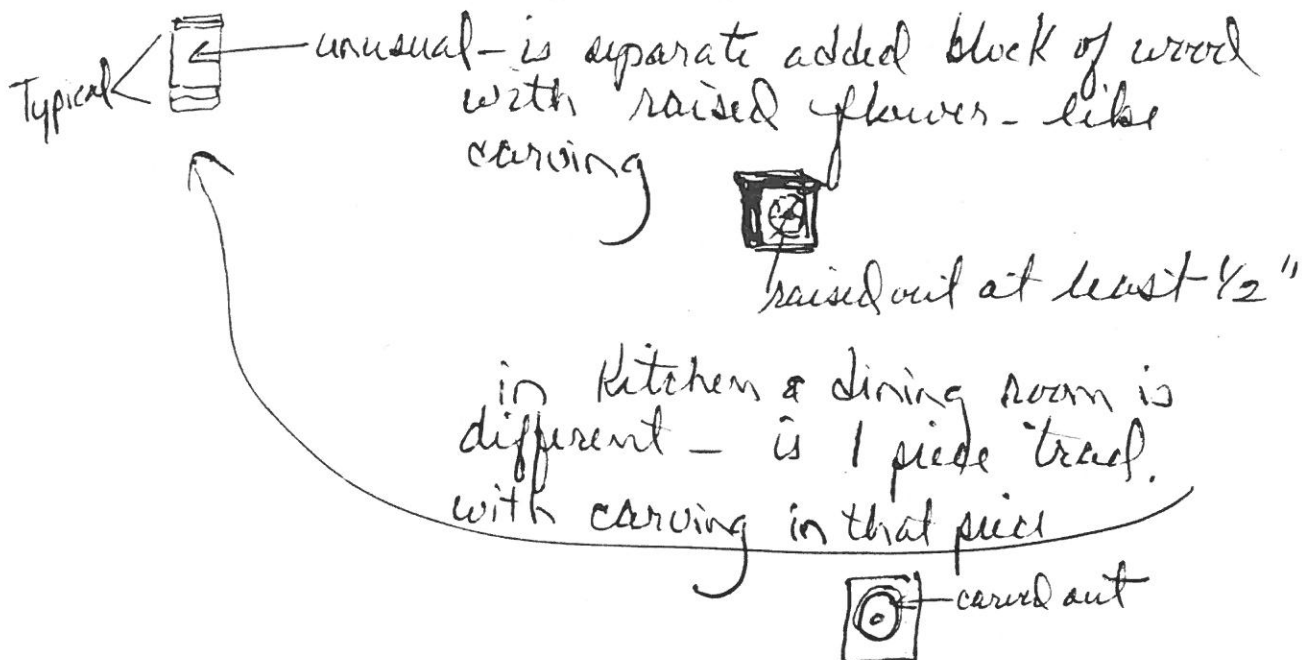 Typical
unusual - is separate added block of wood
with raised flower-like
carving
raised out at least 1/2"
in Kitchen & dining room is
different - is 1 piece trad.
with carving in that piece
carved out